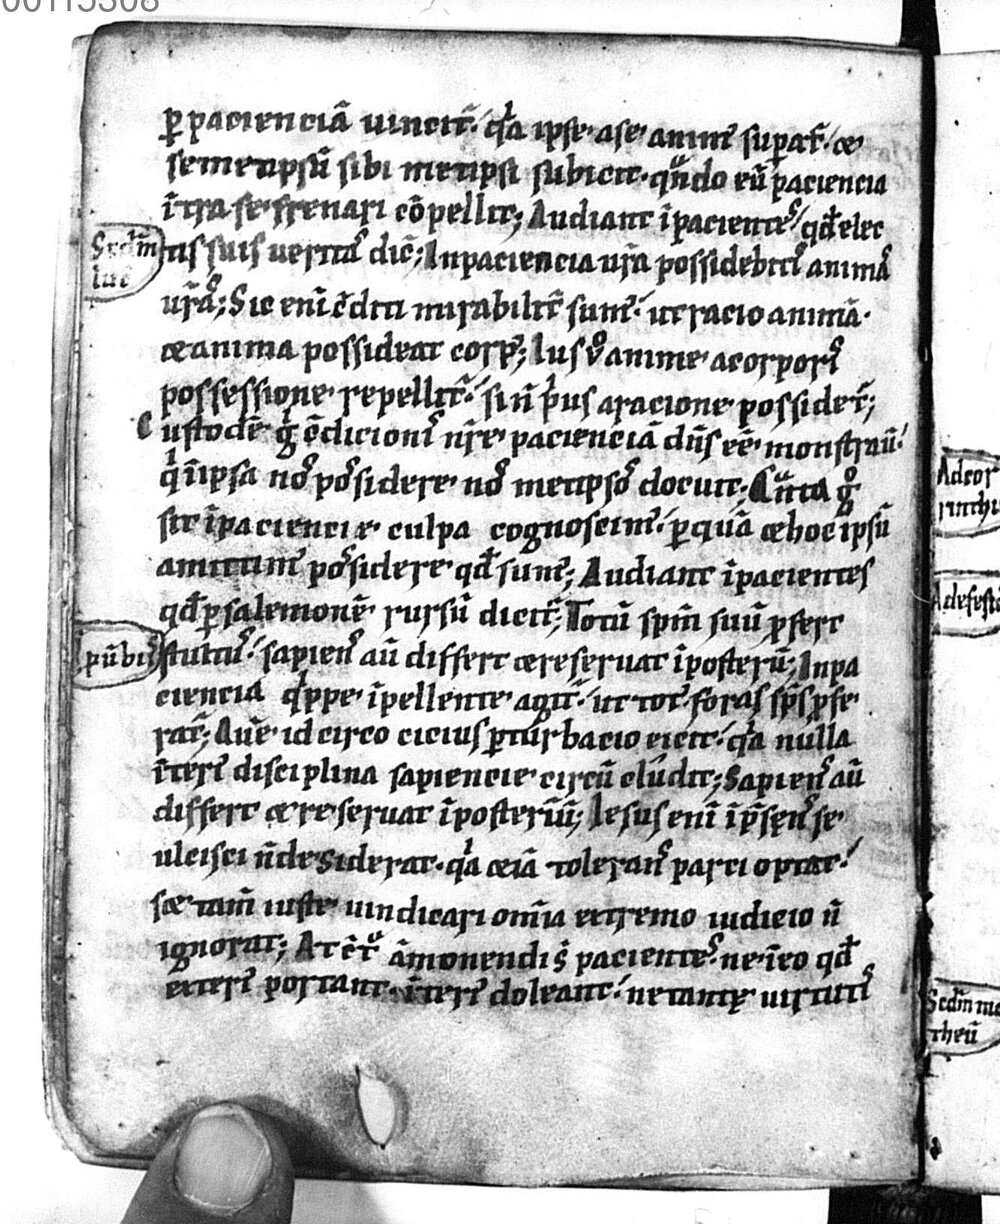 00115308
ꝑ pacienciā uincit᷑· q̇a ipse· a se· animꝰ suꝑat᷑· &
semetipsū sibi metipsi subicit· qͣndo eū paciencia
īt᷑ra se· frenari cōpellit; Audiant īpacientes/ qđ elec
Scdm̄
tis suis ueritas dic̄; In paciencia ur̄a possidebitis animas
luc̄
ur̄as; Sic eni c̄diti mirabilit᷑ sumꝰ· ut racio animā·
& anima possideat corpꝰ; Ius u̾ anime· a corporis
possessione· repellit᷑· si n̄ pͥus a racione· possidet᷑;
Custodē gͦ c̄dicionis nr̄e· pacienciā dn̄s ee᷑· monstrau᷑·
qͥ ī ipsa nos possidere· nosmetipsos docuit; Qͣnta gͦ
sit īpaciencie· culpa cognoscimꝰ· ꝑ quā & hoc ipsū
amittimꝰ possidere· qđ sumꝰ; Audiant īpacientes
qđ ꝑ salemonē· rursū dicit᷑; Totū spm̄ suū ꝓfert
ꝓūbiis
stultus· sapiens aū differt & reseruat īposterū; Inpa
ciencia qͥppe· īpellente· agit᷑· ut totꝰ· foras sp̄s ꝓfe
rat᷑; Quē· idcirco cicius ꝑturbacio eicit· q̇a nulla
īteriꝰ disciplina sapiencie· circū cludit; Sapiens aū
differt & reseruat īposterū; Lesus eni īp̄sens se·
ulcisci n̄ desiderat· q̇a &iā tolerans parci optat·
s& tam̄ iuste· uindicari om̄ia extremo iudicio n̄
ignorat; At c̄tͣ āmonendi sꝰ pacientes· ne· īeo qđ
exteriꝰ portant· īteriꝰ doleant· ne tante᷑ uirtutis
Ad cor
rinthi
Ad efesi
Scdm̄ ma
theū